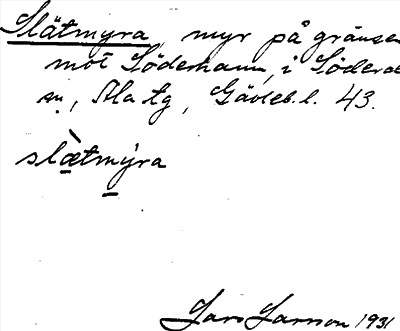 Slätmyra, myr på gränsen
mot Söderhamn, i Söderal
sn, Ala tg, Gävleb. l. 43.
slætmýra
Lars Larsson 1931